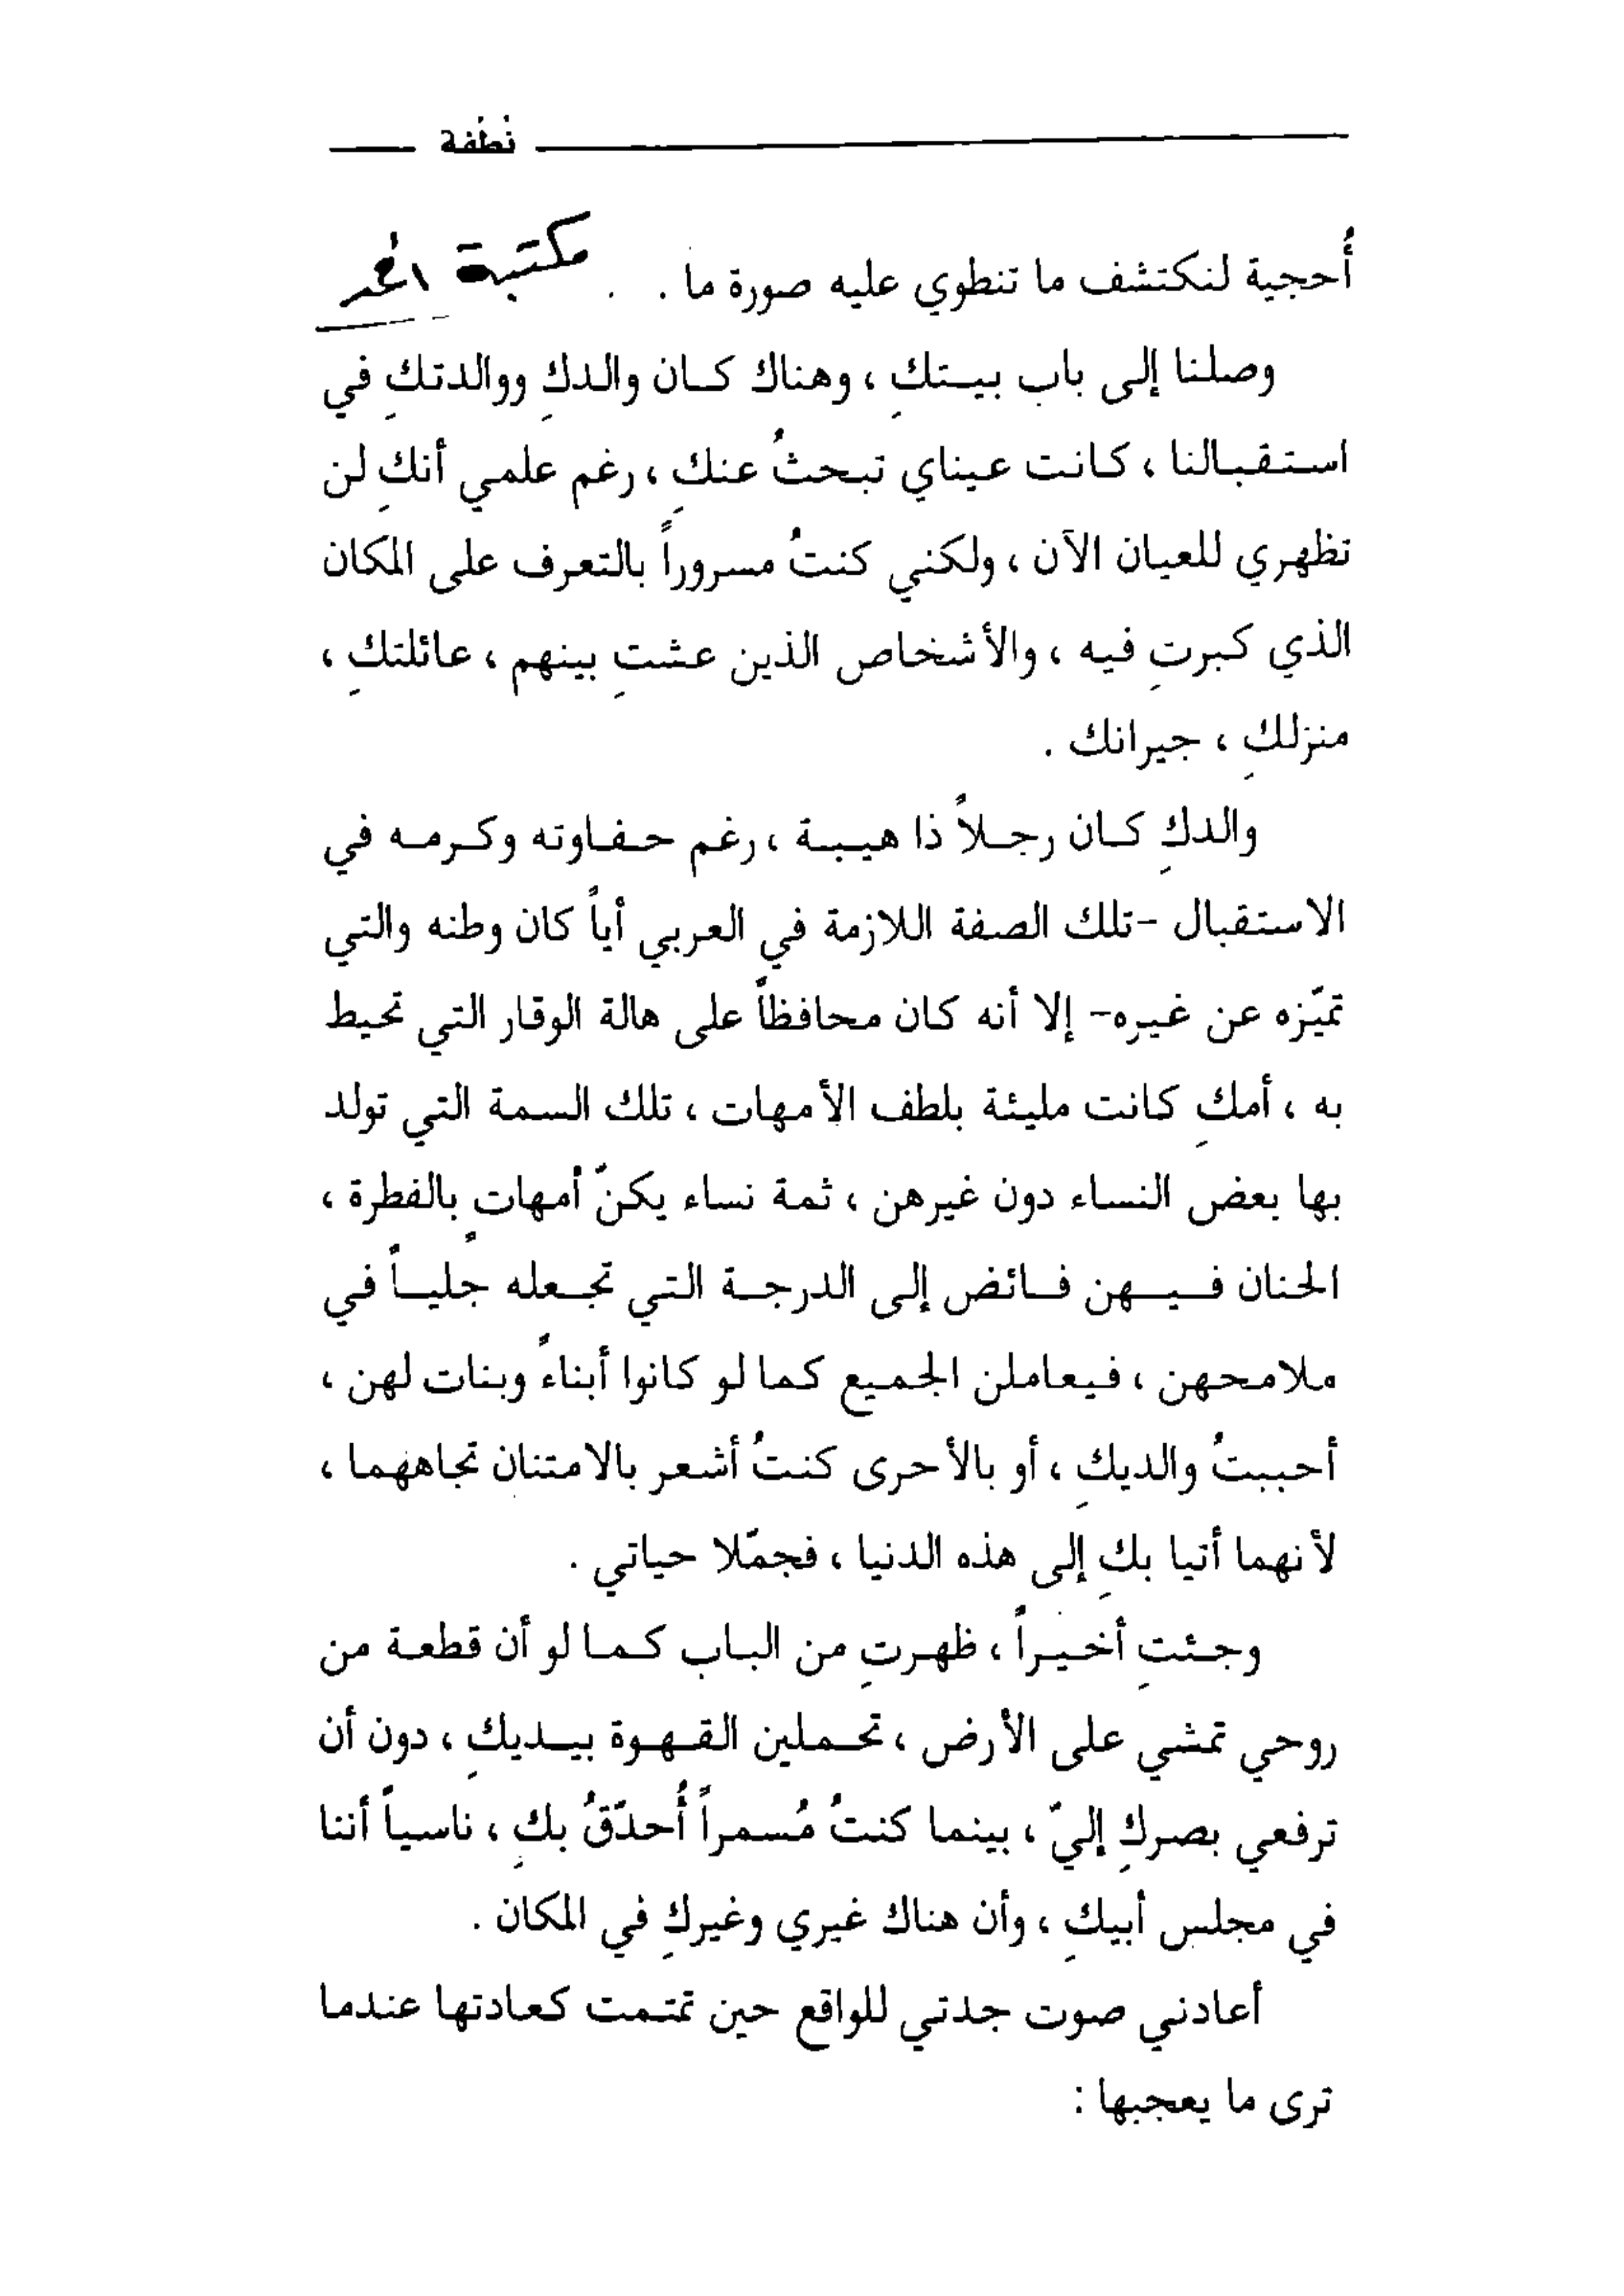 نُطْفة
أُحجية لنكتشف ما تنطوي عليه صورة ما .
مكتبة
وصلنا إلى باب بيتكِ ، وهناك كان والدكِ ووالدتكِ في
استقبالنا ، كانت عيناي تبحثُ عنكِ ، رغم علمي أنكِ لن
تظهري للعيان الآن ، ولكني كنتُ مسروراً بالتعرف على المكان
الذي كبرتِ فيه ، والأشخاص الذين عشتِ بينهم ، عائلتكِ ،
منزلكِ ، جيرانك .
والدكِ كان رجلاً ذا هيبة ، رغم حفاوته وكرمه في
الاستقبال -تلك الصفة اللازمة في العربي أياً كان وطنه والتي
تميّزه عن غيره- إلا أنه كان محافظاً على هالة الوقار التي تحيط
به ، أمكِ كانت مليئة بلطف الأمهات ، تلك السمة التي تولد
بها بعض النساء دون غيرهن ، ثمة نساء يكنّ أمهاتٍ بالفطرة ،
الحنان فيهن فائض إلى الدرجة التي تجعله جُلياً في
ملامحهن ، فيعاملن الجميع كما لو كانوا أبناءً وبنات لهن ،
أحببتُ والديكِ ، أو بالأحرى كنتُ أشعر بالامتنان تجاههما ،
لأنهما أتيا بكِ إلى هذه الدنيا ، فجمّلا حياتي .
وجئتِ أخيراً ، ظهرتِ من الباب كما لو أن قطعة من
روحي تمشي على الأرض ، تحملين القهوة بيديكِ ، دون أن
ترفعي بصركِ إليّ ، بينما كنتُ مُسمراً أُحدّقُ بكِ ، ناسياً أننا
في مجلس أبيكِ ، وأن هناك غيري وغيركِ في المكان .
أعادني صوت جدتي للواقع حين تمتمت كعادتها عندما
ترى ما يعجبها :